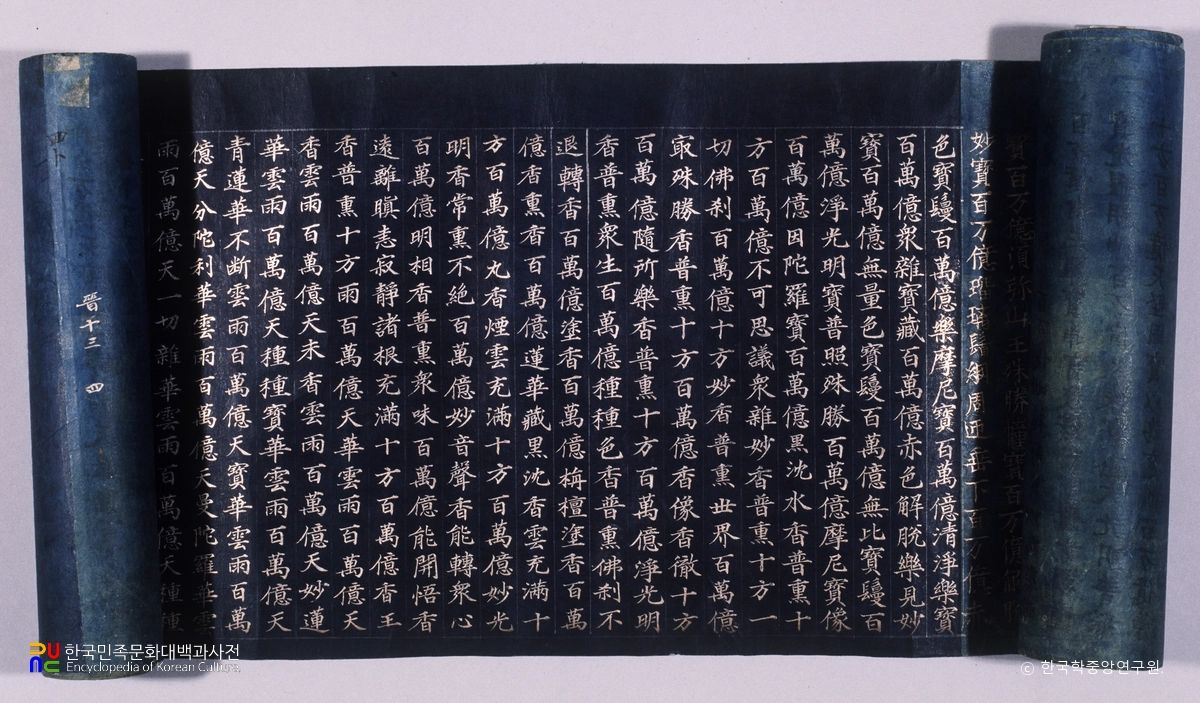 寶百万億須弥山王殊勝幢寶百万億
妙寶百万億瑠璃髻網周匝垂下百万億
色寶鬘百萬億樂摩尼寶百萬億清淨樂寶
百萬億衆雜寶藏百萬億赤色解脱樂見妙
寶百萬億無量色寶鬘百萬億無比寶鬘百
萬億淨光明寶普照殊勝百萬億摩尼寶像
百萬億因陀羅寶百萬億黒沈水香普熏十
方百萬億不可思議衆雜妙香普熏十方一
切佛刹百萬億十方妙香普熏世界百萬億
㝡殊勝香普熏十方百萬億香像香徹十方
百萬億隨所樂香普熏十方百萬億淨光明
香普熏衆生百萬億種種色香普熏佛刹不
退轉香百萬億塗香百萬億栴檀塗香百萬
億香熏香百萬億蓮華藏黒沈香雲充滿十
方百萬億丸香煙雲充滿十方百萬億妙光
明香常熏不絶百萬億妙音聲香能轉衆心
百萬億明相香普熏衆味百萬億能開悟香
遠離瞋恚寂靜諸根充滿十方百萬億香王
香普熏十方雨百萬億天華雲雨百萬億天
香雲雨百萬億天末香雲雨百萬億天妙蓮
華雲雨百萬億天種種寶華雲雨百萬億天
青蓮華不断雲雨百萬億天寶華雲雨百萬
億天分陀利華雲雨百萬億天曼陀羅華雲
雨百萬億天一切雜華雲雨百萬億天種種
晉十三 四
한국민족문화대백과사전
Encyclopedia of Korean Culture
© 한국학중앙연구원